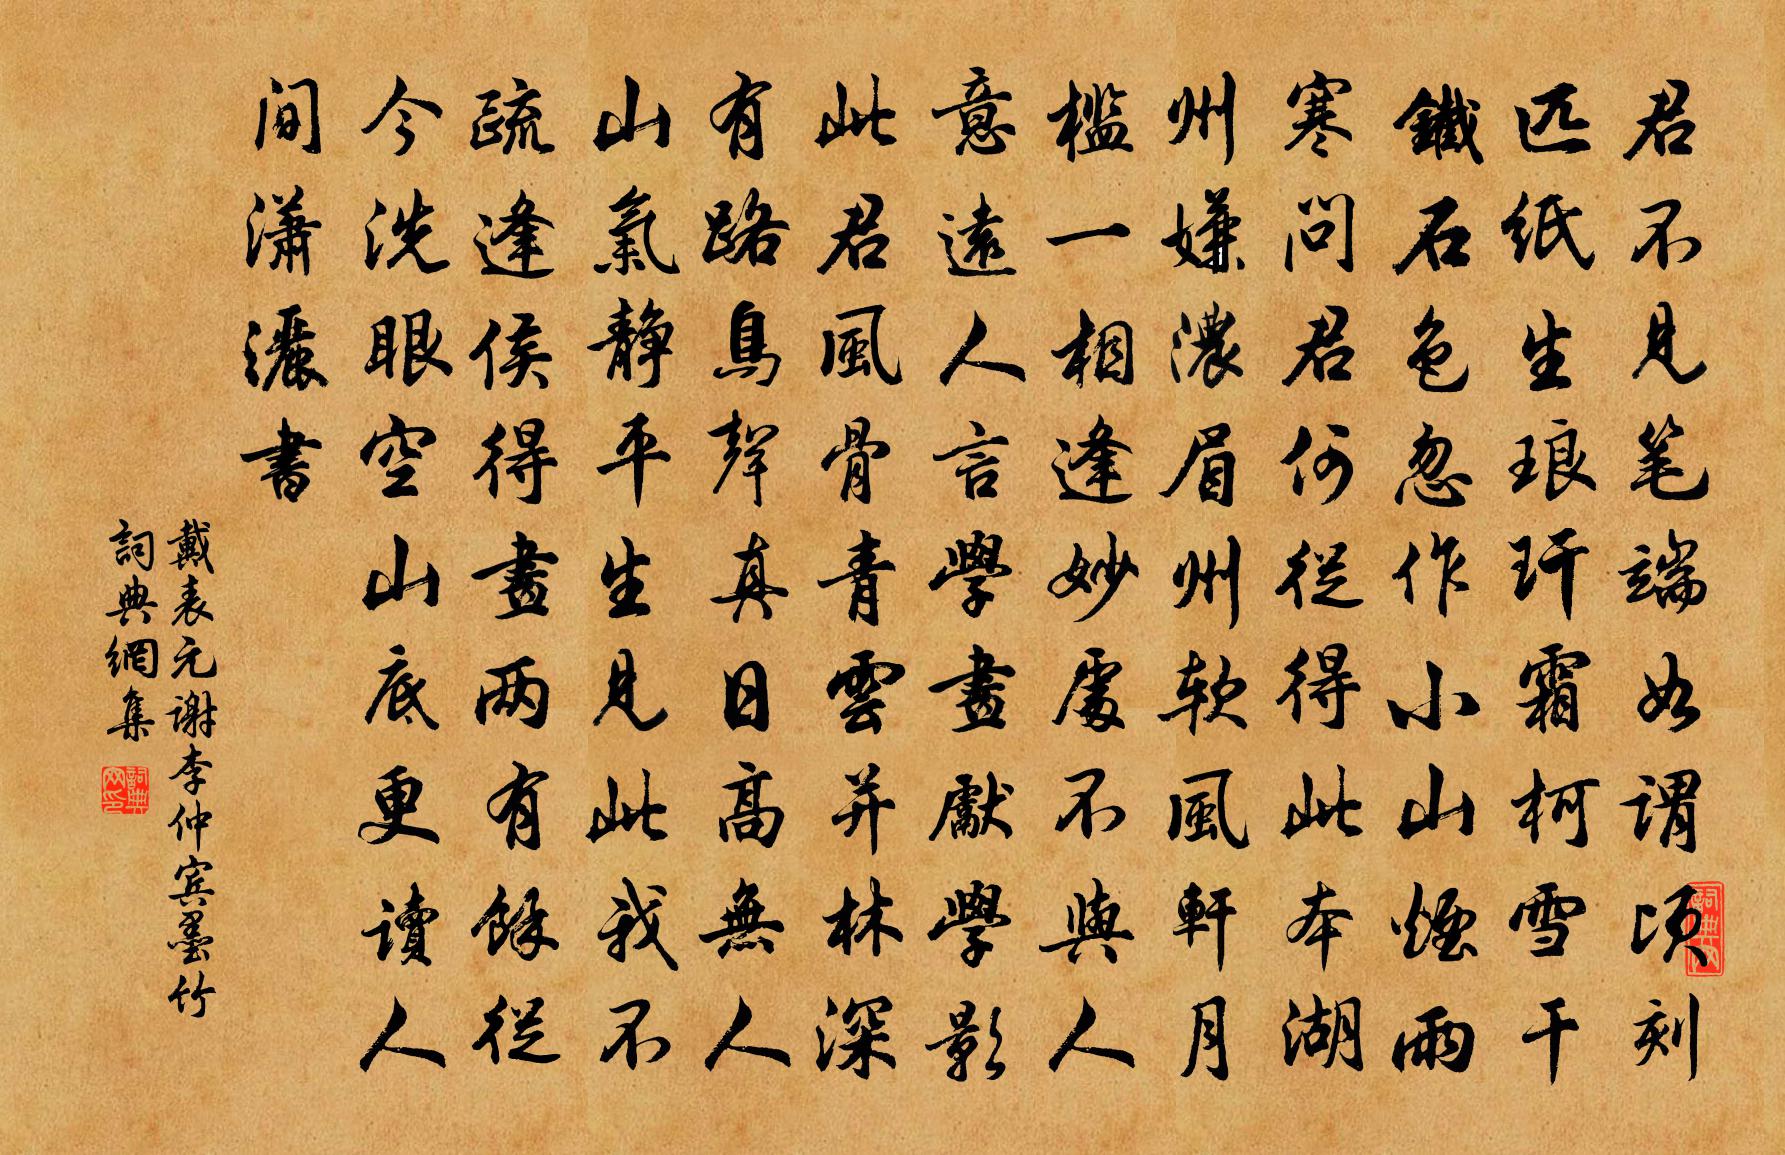 君不見笔端如谓頃刻
匹纸生琅玕霜柯雪干
鐵石色忽作小山煙雨
寒問君何從得此本湖
州嫌濃眉州软風軒月
檻一相逢妙處不與人
意遠人言學畫獻學影
此君風骨青雲并林深
有路鳥聲真日高無人
山氣静平生見此我不
疏逢侯得畫两有餘從
今洗眼空山底更读人
间潇灑書
戴表元谢李仲宾墨竹
詞典網集
詞典网印
詞典网